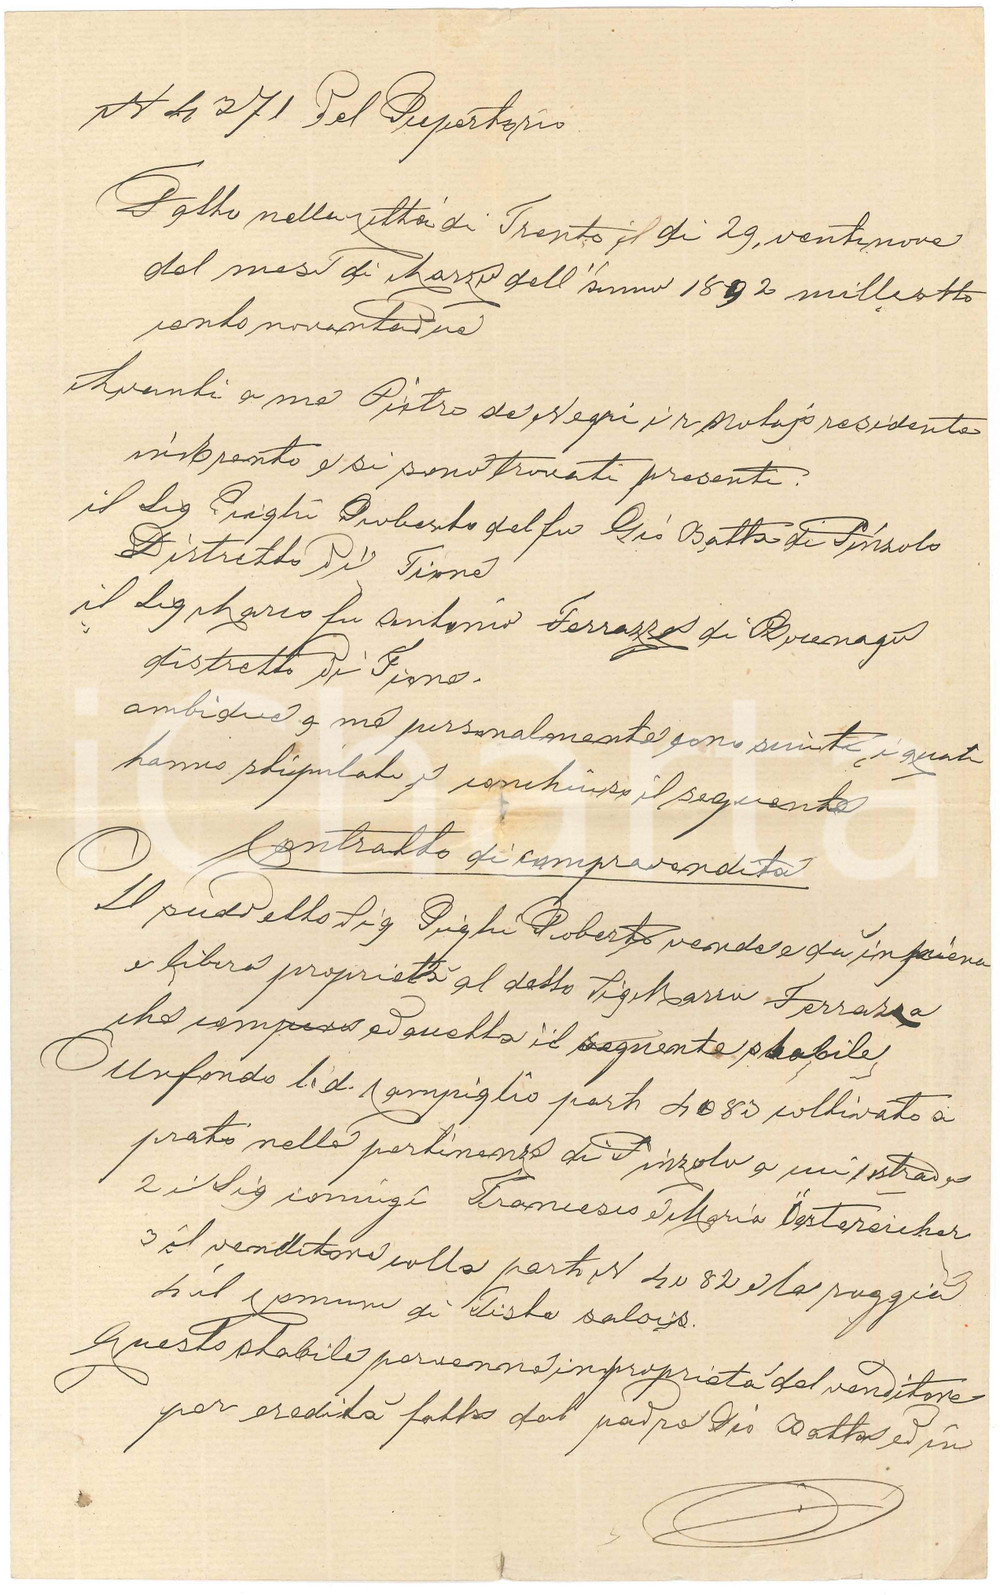 N 4371 Del Repertorio
Fatto nella città di Trento il di 29, ventinove
del mese di Marzo dell'anno 1892 milleotto
cento novantadue
Avanti a me Pietro de Negri i r Notajo residente
in Trento e si sono trovati presenti:
il Sig Righi Roberto del fu Gio Batta di Pinzolo
Distretto di Tione
il Sig Marco fu Antonio Ferrazza di Bocenago
distretto di Tione.
ambidue a me personalmente conosciuti, i quali
hanno stipulato e conchiuso il seguente
Contratto di compravendita
Il suddetto Sig Righi Roberto vende e da in piena
e libera proprietà al detto Sig Marco Ferrazza
che compera ed accetta il seguente stabile,
Un fondo l. d. Campiglio part 4083 coltivato a
prato nelle pertinenze di Pinzolo a cui 1 strada
2 i Sig coniugi Francesco e Maria Östereicher
3 il venditore colla part N 4082 e la roggia
4 il comune di
Questo stabile pervenne in proprietà del venditore
per eredità fatta dal padre Gio Batta ed in
iCharta